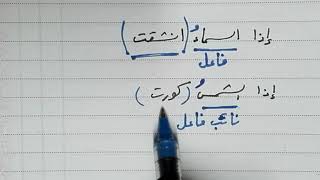 إذا السماءُ (انشقت)
فاعل
إذا الشمسُ (كورت)
نائب فاعل